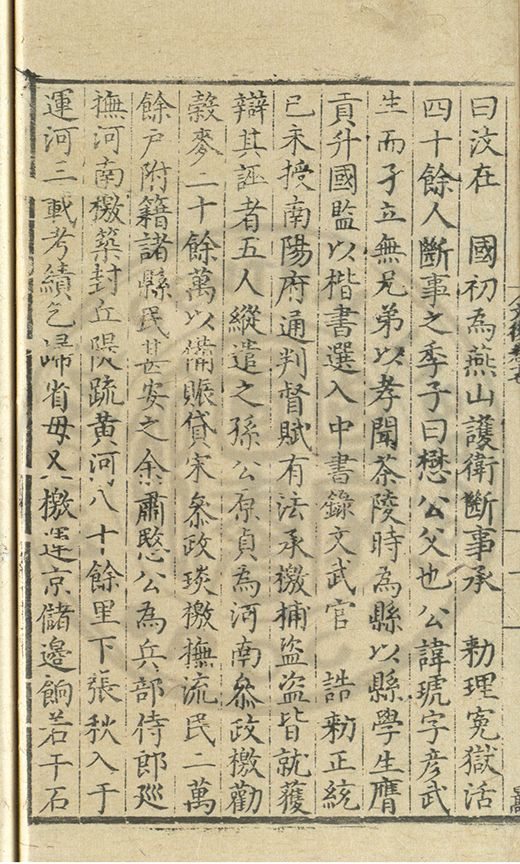 曰汶在　國初為燕山護衛斷事承　勑理寃獄活
四十餘人斷事之季子曰懋公父也公諱琥字彦武
生而孑立無兄弟以孝聞茶陵時為縣以縣學生膺
貢升國監以楷書選入中書錄文武官　誥勑正統
己未授南陽府通判督賦有法承檄捕盜盜皆就獲
辯其誣者五人縱遣之孫公原貞為河南叅政檄勸
榖麥二十餘萬以備賑貸宋叅政琰檄撫流民二萬
餘戶附籍諸縣民甚安之余肅愍公為兵部侍郎廵
撫河南檄築封丘隄䟽黄河八十餘里下張秋入于
運河三載考績乞歸省母又檄運京儲邊餉若干石